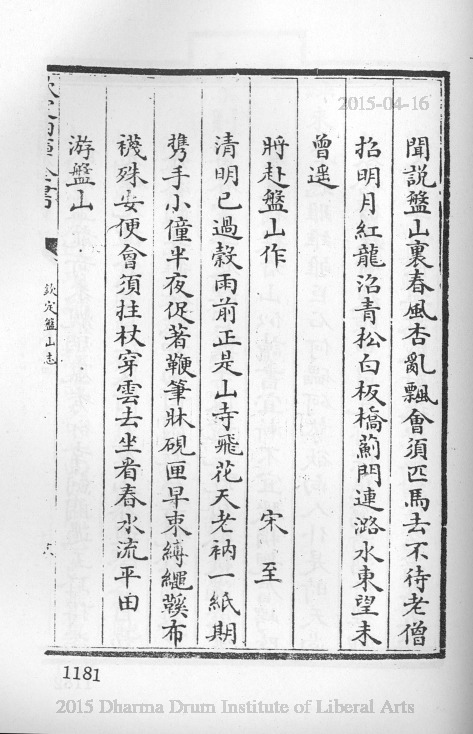 2015-04-16
聞說盤山裏春風杏亂飄會須匹馬去不待老僧
招明月紅龍沼青松白板橋薊門連潞水東望未
曾遥
將赴盤山作　宋至
清明已過穀雨前正是山寺飛花天老衲一紙期
携手小僮半夜促著鞭筆牀硯匣早束縛繩鞵布
襪殊安便會須拄杖穿雲去坐看春水流平田
游盤山
欽定盤山志
1181
2015 Dharma Drum Institute of Liberal Arts